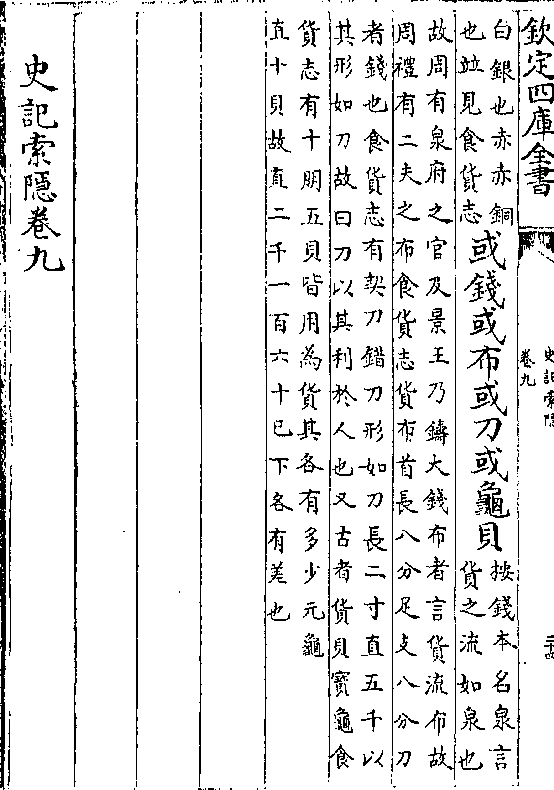 欽定四庫全書
史記索隠
卷九
白銀也赤赤銅
也竝見食貨志
或錢或布或刀或龜貝
按錢本名泉言
貨之流如泉也
故周有泉府之官及景王乃鑄大錢布者言貨流布故
周禮有二夫之布食貨志貨布首長八分足支八分刀
者錢也食貨志有契刀錯刀形如刀長二寸直五千以
其形如刀故曰刀以其利於人也又古者貨貝寳龜食
貨志有十朋五貝皆用為貨其各有多少元龜
直十貝故直二千一百六十已下各有差也
史記索隠卷九